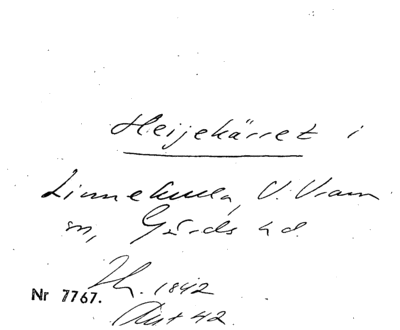 Heijekärret i
Linnekulla, V. Vram
sn, Gärds hd.
1842
Nr 7767.
42.